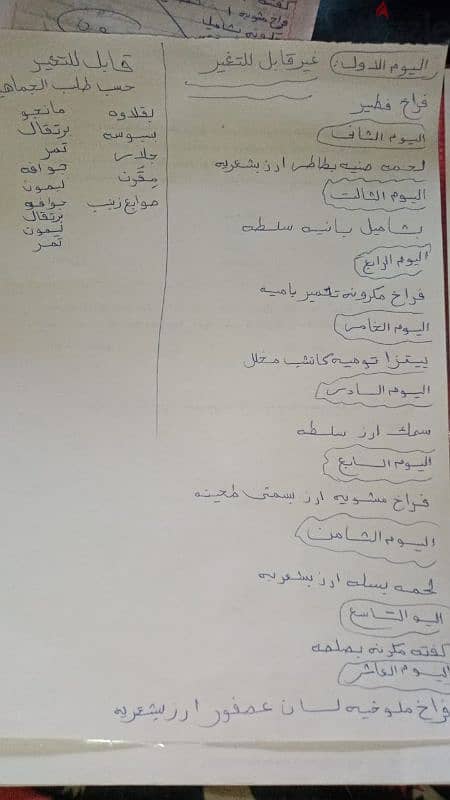 اليوم الاول: غير قابل للتغير
فراخ فطير
اليوم الثاف
لحمه صنيه بطاطس ارز بشعريه
اليوم الثالث
بشاميل بانيه سلطه
اليوم الرابع
فراخ مكرونه تخمير باميه
اليوم الخامس
بيتزا توميه كاتشب مخلل
اليوم السادس
سمك ارز سلطه
اليوم السابع
فراخ مشويه ارز بسمتى طحينه
اليوم الثامن
لحمه بسله ارز بشعريه
اليو التاسع
كفته مكرونه بصلصه
اليوم العاشر
فراخ ملوخيه لسان عصفور ارز بشعريه
قابل للتغير
حسب طلب الجماهير
بقلاوه
بسبوسه
جلاش
صوابع زينب
مانجو
برتقال
تمر
جوافه
ليمون
جوافه
برتقال
ليمون
تمر